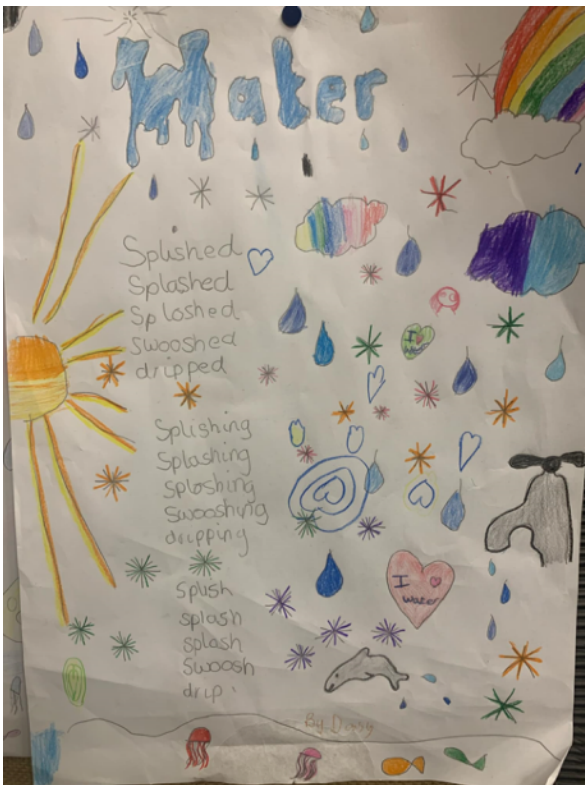 Water
Splished
Splashed
Sploshed
swooshed
dripped
Splishing
Splashing
Sploshing
Swooshing
dripping
Splish
splash
splash
Swoosh
drip
I
I
water
By